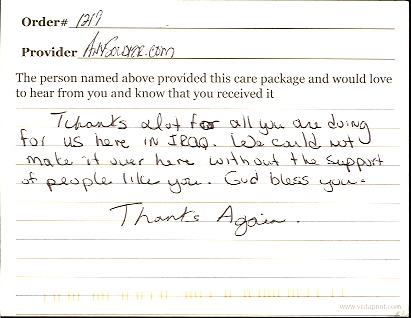 Order# 1219
Provider AnySoldier.com
The person named above provided this care package and would love
to hear from you and know that you received it
Thanks alot for all you are doing
for us here in IRAQ. We could not
make it over here without the support
of people like you. God bless you.
Thanks Again.
www.vistaprint.com